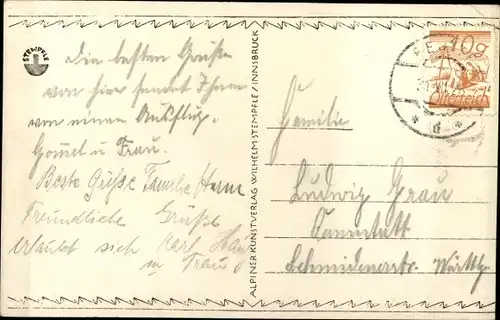 STEMPFLE
Die besten Grüße
von hier sendet Ihnen
von einem Ausflug.
u Frau.
Beste Grüße Familie
Freundliche Grüße
erlaubt sich Karl
u Frau
ALPINER KUNSTVERLAG WILHELM STEMPFLE / INNSBRUCK
10g
Österreich
Familie
Ludwig Grau
Cannstatt
Schmidenerstr. Württbg.